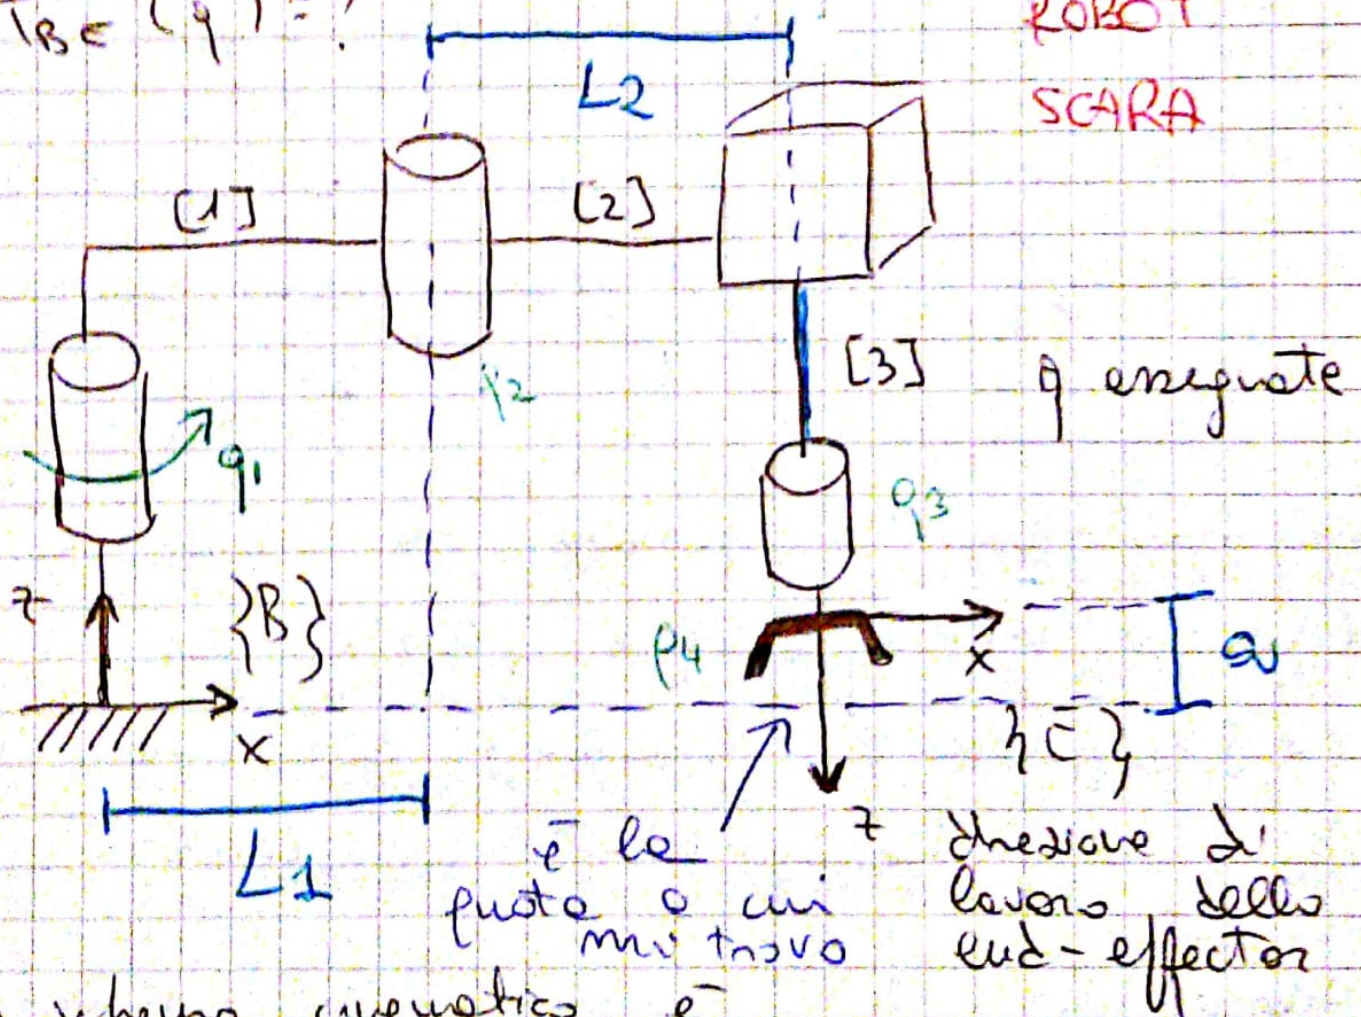 T_BE (q) = ?
ROBOT
SCARA
L2
[1]
[2]
q2
[3]
q assegnate
q1
q3
z
{B}
q4
x
a
x
{E}
L1
è la
quota a cui
mi trovo
z
direzione di
lavoro dello
end-effector
schema cinematico è